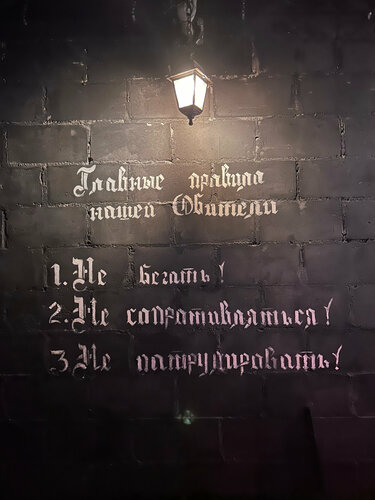 Главные правила
нашей Обители
1. Не бегать!
2. Не сопротивляться!
3. Не патрулировать!